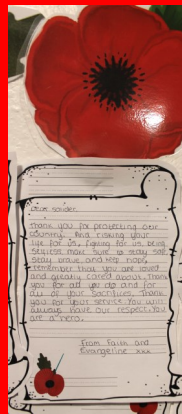 Dear soldier,
Thank you for protecting our
country. And risking your
life for us, fighting for us, being
make sure to stay safe
Stay brave and keep hope,
remember that you are loved
and greatly cared about. Thank
you for all you do and for
all of your sacrifices. Thank
you for your service. You will
always have our respect. You
are a hero.
From Faith and
Evangerline xxx